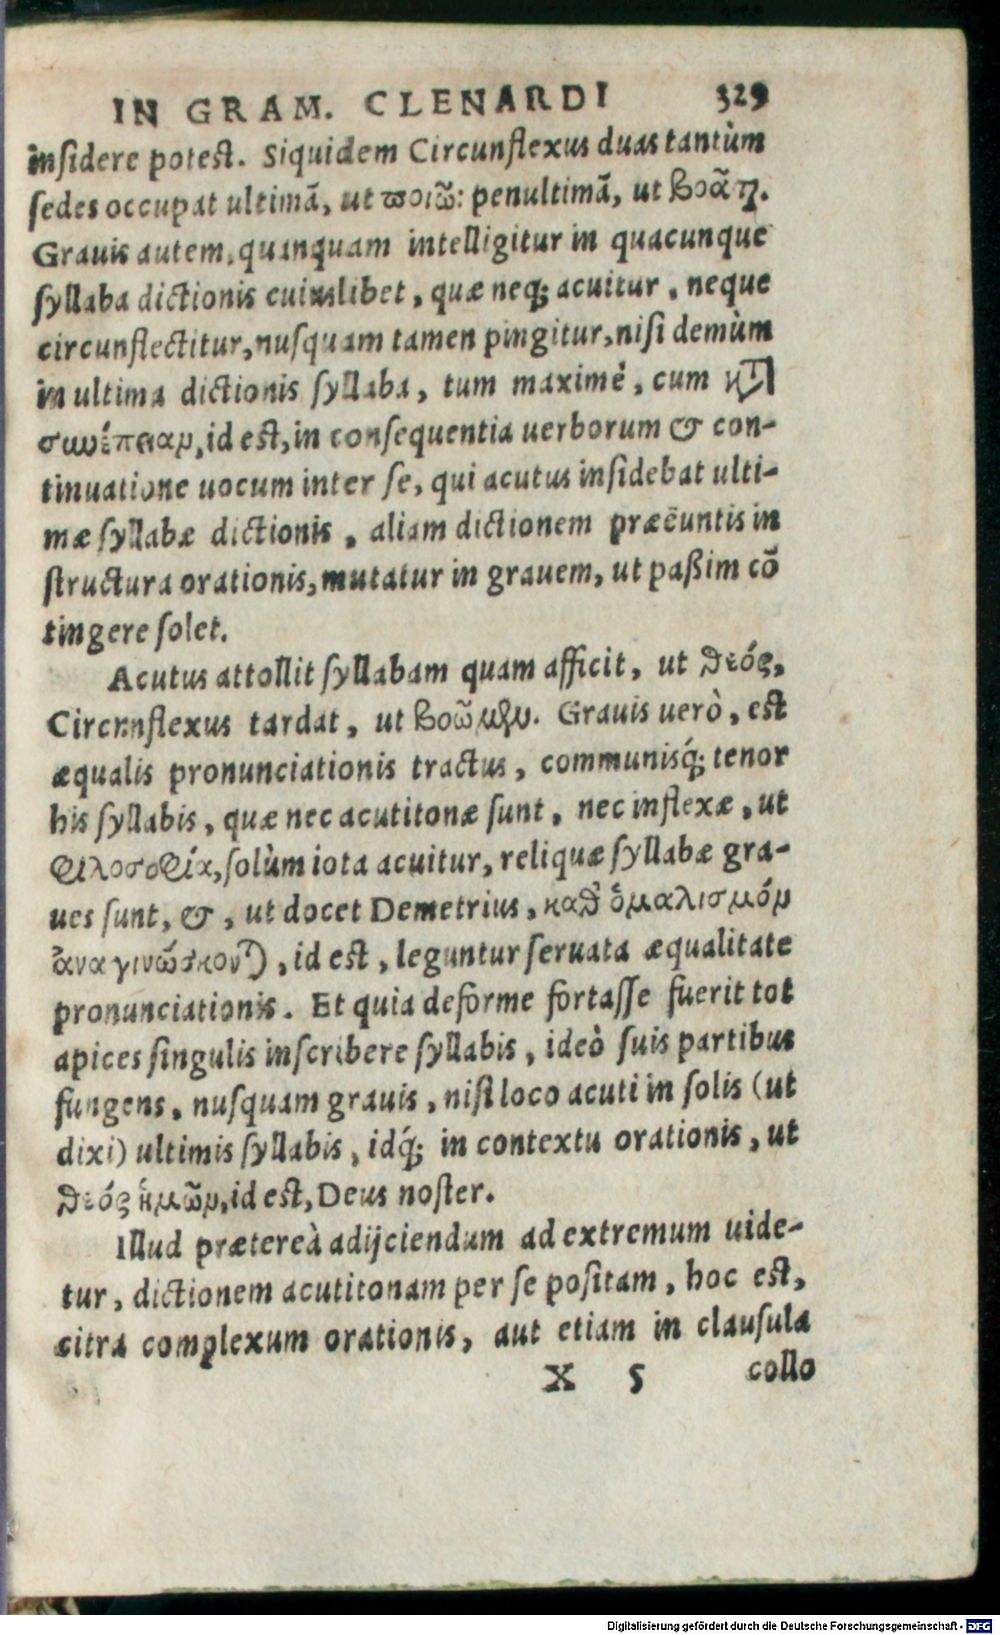 IN GRAM. CLENARDI 329
insidere potest. Siquidem Circunflexus duas tantùm
sedes occupat ultimã, ut ποιῶ: penultimã, ut βοᾶτε.
Grauis autem, quanquam intelligitur in quacunque
syllaba dictionis cuiuslibet, quæ neq; acuitur, neque
circunflectitur, nusquam tamen pingitur, nisi demùm
in ultima dictionis syllaba, tum maximè, cum κατὰ
συνέπειαν, id est, in consequentia uerborum & con-
tinuatione uocum inter se, qui acutus insidebat ulti-
mæ syllabæ dictionis, aliam dictionem præëuntis in
structura orationis, mutatur in grauem, ut paßim cõ
tingere solet.
Acutus attollit syllabam quam afficit, ut θεός,
Circrnflexus tardat, ut βοῶμεν. Grauis uerò, est
æqualis pronunciationis tractus, communisq́; tenor
his syllabis, quæ nec acutitonæ sunt, nec inflexæ, ut
φιλοσοφία, solùm iota acuitur, reliquæ syllabæ gra-
ues sunt, &, ut docet Demetrius, καθ' ὁμαλισμόν
ἀναγινώσκονται, id est, leguntur seruata æqualitate
pronunciationis. Et quia deforme fortasse fuerit tot
apices singulis inscribere syllabis, ideò suis partibus
fungens, nusquam grauis, nisi loco acuti in solis (ut
dixi) ultimis syllabis, idq́; in contextu orationis, ut
θεός ἡμῶν, id est, Deus noster.
Illud prætereà adijciendum ad extremum uide-
tur, dictionem acutitonam per se positam, hoc est,
citra complexum orationis, aut etiam in clausula
X 5 collo
Digitalisierung gefördert durch die Deutsche Forschungsgemeinschaft - DFG